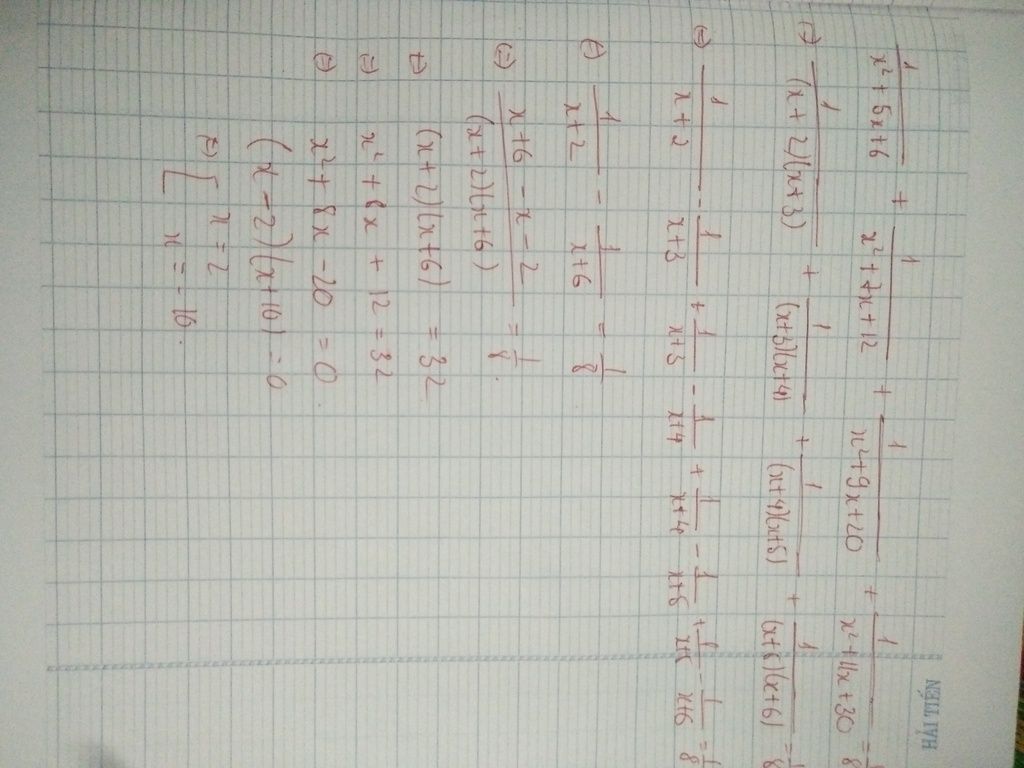 HẢI TIẾN
1/(x² + 5x + 6) + 1/(x² + 7x + 12) + 1/(x² + 9x + 20) + 1/(x² + 11x + 30) = 1/8
⇔ 1/((x + 2)(x + 3)) + 1/((x+3)(x+4)) + 1/((x+4)(x+5)) + 1/((x+5)(x+6)) = 1/8
⇔ 1/(x + 2) - 1/(x+3) + 1/(x+3) - 1/(x+4) + 1/(x+4) - 1/(x+5) + 1/(x+5) - 1/(x+6) = 1/8
⇔ 1/(x+2) - 1/(x+6) = 1/8
⇔ (x+6 - x - 2)/((x+2)(x+6)) = 1/8.
⇔ (x+2)(x+6) = 32
⇔ x² + 8x + 12 = 32
⇔ x² + 8x - 20 = 0
(x - 2)(x + 10) = 0
⇔ [ x = 2
x = -10.